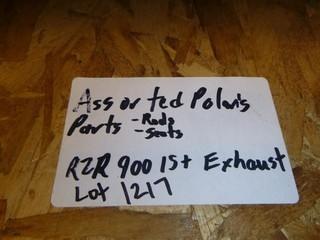 Assorted Polaris
Parts - Rods
- Seats
RZR 900 1st Exhaust
Lot 1217